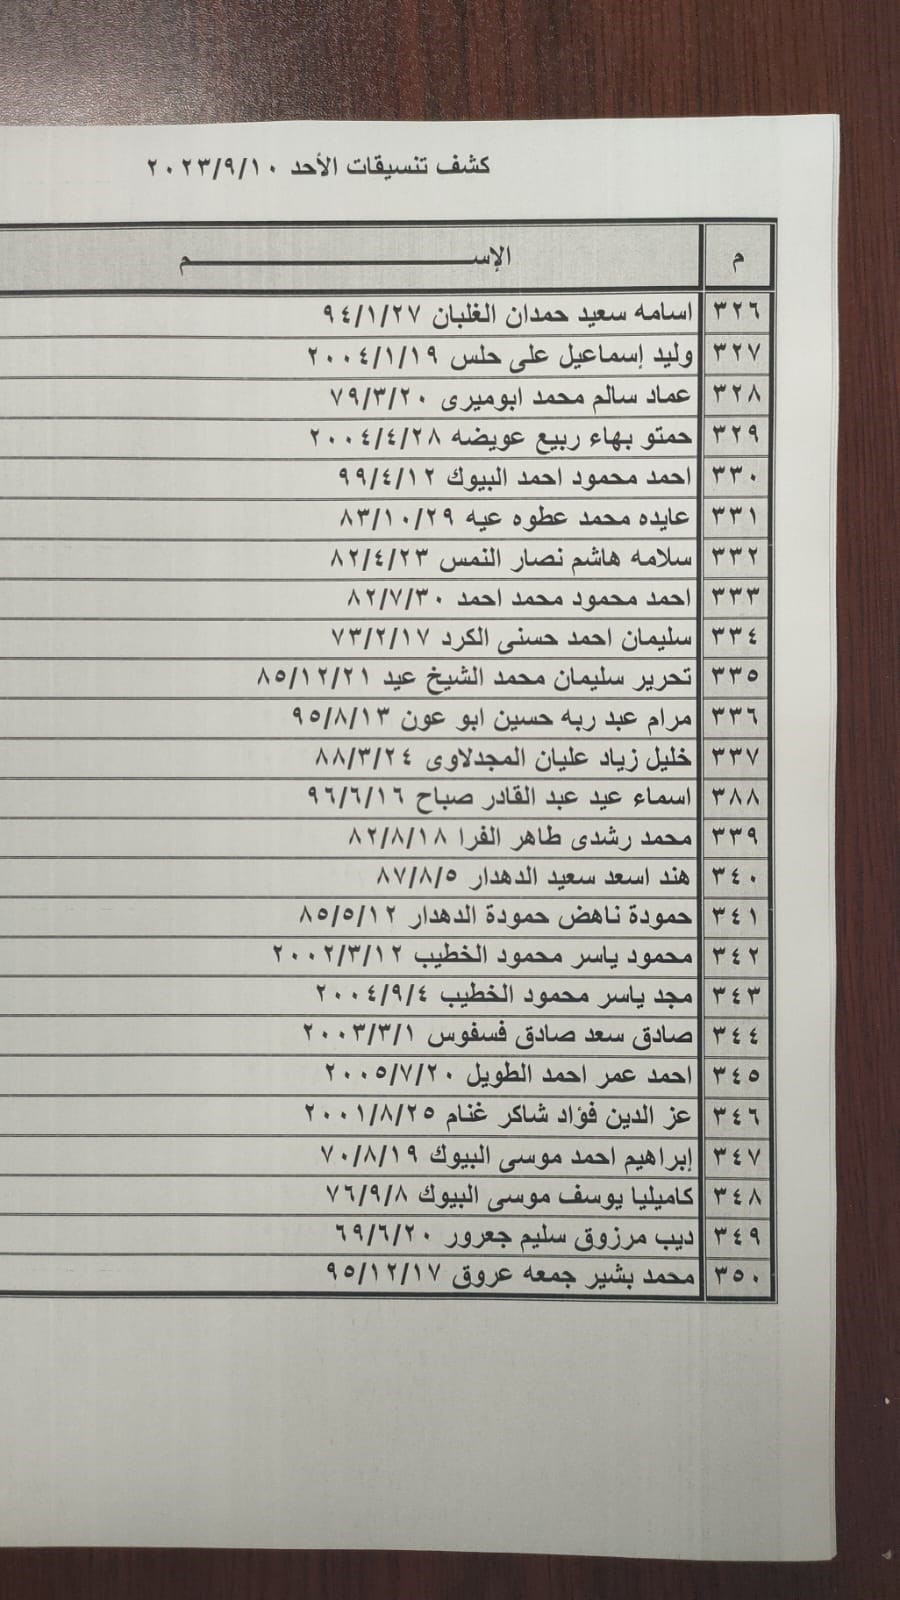 كشف تنسيقات الأحد ٢٠٢٣/٩/١٠
م الإســـــــــــــــــــــم
٣٢٦ اسامه سعيد حمدان الغلبان ٩٤/١/٢٧
٣٢٧ وليد إسماعيل على حلس ٢٠٠٤/١/١٩
٣٢٨ عماد سالم محمد ابوميرى ٧٩/٣/٢٠
٣٢٩ حمتو بهاء ربيع عويضه ٢٠٠٤/٤/٢٨
٣٣٠ احمد محمود احمد البيوك ٩٩/٤/١٢
٣٣١ عايده محمد عطوه عيه ٨٣/١٠/٢٩
٣٣٢ سلامه هاشم نصار النمس ٨٢/٤/٢٣
٣٣٣ احمد محمود محمد احمد ٨٢/٧/٣٠
٣٣٤ سليمان احمد حسنى الكرد ٧٣/٢/١٧
٣٣٥ تحرير سليمان محمد الشيخ عيد ٨٥/١٢/٢١
٣٣٦ مرام عبد ربه حسين ابو عون ٩٥/٨/١٣
٣٣٧ خليل زياد عليان المجدلاوى ٨٨/٣/٢٤
٣٨٨ اسماء عيد عبد القادر صباح ٩٦/٦/١٦
٣٣٩ محمد رشدى طاهر الفرا ٨٢/٨/١٨
٣٤٠ هند اسعد سعيد الدهدار ٨٧/٨/٥
٣٤١ حمودة ناهض حمودة الدهدار ٨٥/٥/١٢
٣٤٢ محمود ياسر محمود الخطيب ٢٠٠٢/٣/١٢
٣٤٣ مجد ياسر محمود الخطيب ٢٠٠٤/٩/٤
٣٤٤ صادق سعد صادق فسفوس ٢٠٠٣/٣/١
٣٤٥ احمد عمر احمد الطويل ٢٠٠٥/٧/٢٠
٣٤٦ عز الدين فؤاد شاكر غنام ٢٠٠١/٨/٢٥
٣٤٧ إبراهيم احمد موسى البيوك ٧٠/٨/١٩
٣٤٨ كاميليا يوسف موسى البيوك ٧٦/٩/٨
٣٤٩ ديب مرزوق سليم جعرور ٦٩/٦/٢٠
٣٥٠ محمد بشير جمعه عروق ٩٥/١٢/١٧